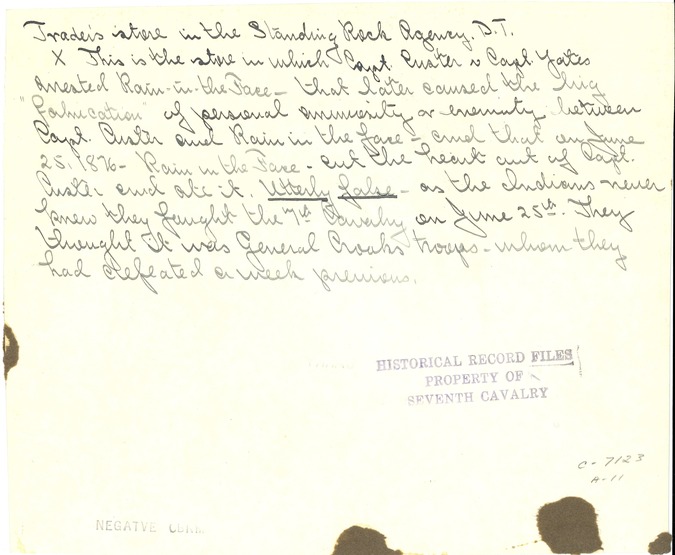 Trader's store in the Standing Rock Agency. D.T.
X This is the store in which Capt. Custer & Capt. Yates
arrested Rain-in-the-Face - that later caused the big
"fabrication" of personal animosity or enemity between
Capt. Custer and Rain in the face - and that on June
25, 1876 - Rain in the Face - cut the heart out of Capt.
Custer and ate it. Utterly false - as the Indians never
knew they fought the 7th Cavalry on June 25th. They
thought it was General Crooks troops - whom they
had defeated a week previous.
HISTORICAL RECORD FILES
PROPERTY OF
SEVENTH CAVALRY
C-7123
A-11
NEGATVE